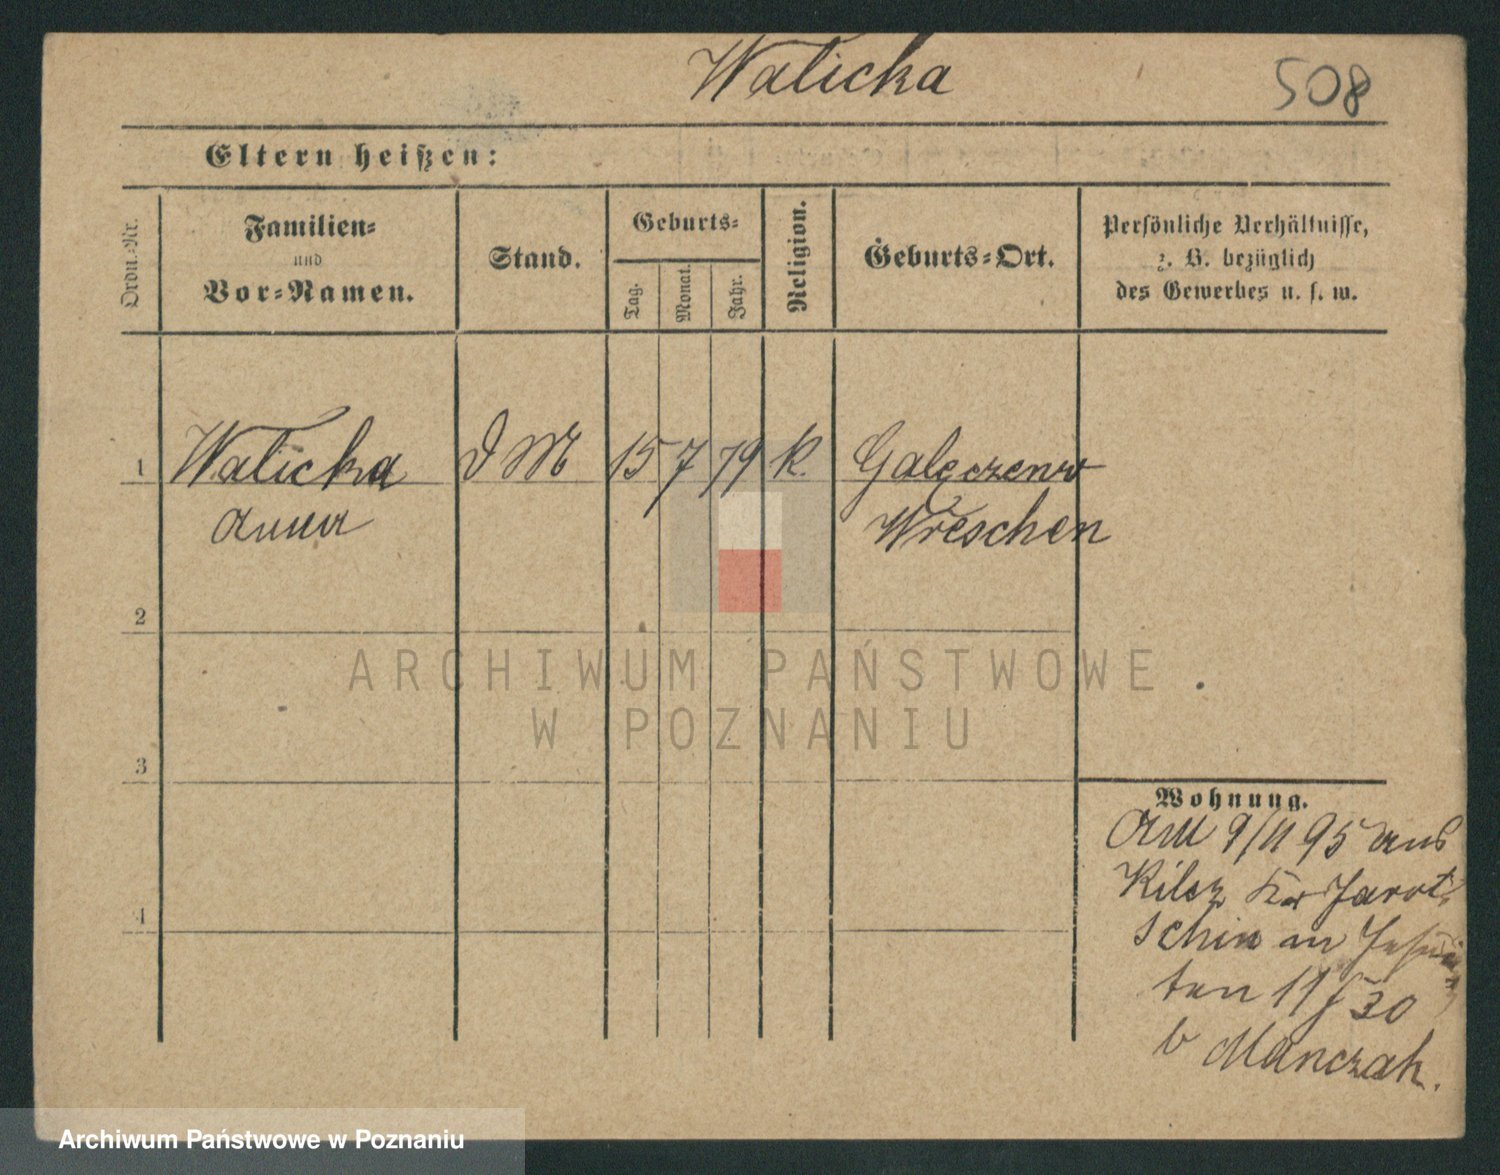 Walicka 508
Eltern heißen:
Ordn.-Nr.
Familien-
und
Vor-Namen.
Stand.
Geburts-
Tag.
Monat.
Jahr.
Religion.
Geburts-Ort.
Persönliche Verhältnisse,
z. B. bezüglich
des Gewerbes u. s. w.
1 Walicka D M 15 7 79 k. Gałęczewo
Anna Wreschen
2
3
4
Wohnung.
Am 9/11 95 aus
Kilsz Kr Jarot
schin an Jesui
ten 11 J 30
b Manczak.
ARCHIWUM PAŃSTWOWE
W POZNANIU
Archiwum Państwowe w Poznaniu